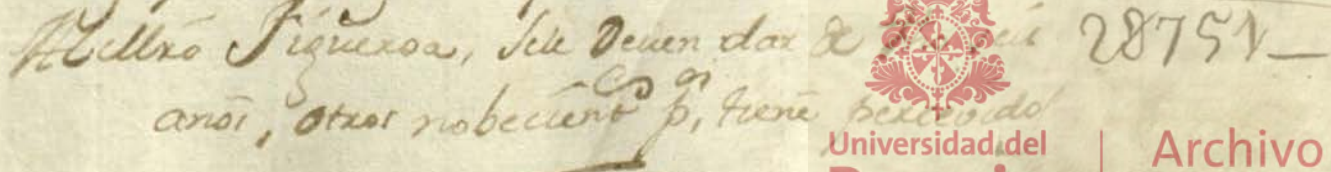 Mellxo Figueroa, Sele Deven dar de seis 2875V_
años, otros nobecientos ps, tiene percevido
Universidad del | Archivo